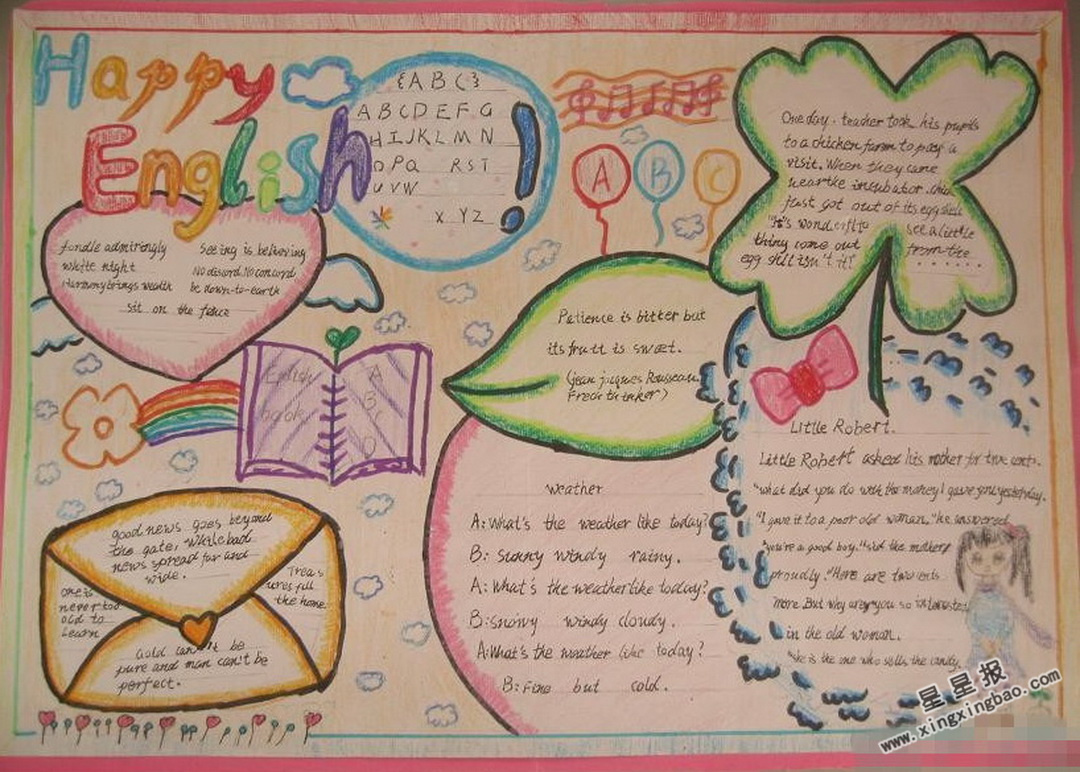 Happy
English!
{ABC}
ABCDEFG
HIJKLMN
OPQ RST
UVW
X YZ
A B C
fondle admiringly
white night
Harmony brings wealth
Seeing is believing
No discord. No concord
be down-to-earth
sit on the fence
book
A
B
C
D
good news goes beyond
the gate, while bad
news spread far and
wide.
one is
never too
old to
learn
Treas
ures fill
the home
Gold can't be
pure and man can't be
perfect.
Patience is bitter but
its fruit is sweet.
(jean jacques Rousseau.
Weather
A: What's the weather like today?
B: sunny windy rainy.
A: What's the weather like today?
B: snowy windy cloudy.
A: What's the weather like today?
B: Fine but cold.
One day. teacher took his pupils
to a chicken farm to pay a
visit. When they came
incubator.
just got out of its egg shell
"It's wonderful to see a little
thing come out from the
egg shell isn't it!" ......
Little Robert.
Little Robert asked his mother for two cents.
"what did you do with the money I gave you yesterday.
"I gave it to a poor old woman," he answered
"you're a good boy," said the mother
proudly. "Here are two cents
more. But why are you so interested
in the old woman.
"she is the one who sells the candy.
星星报
www.xingxingbao.com